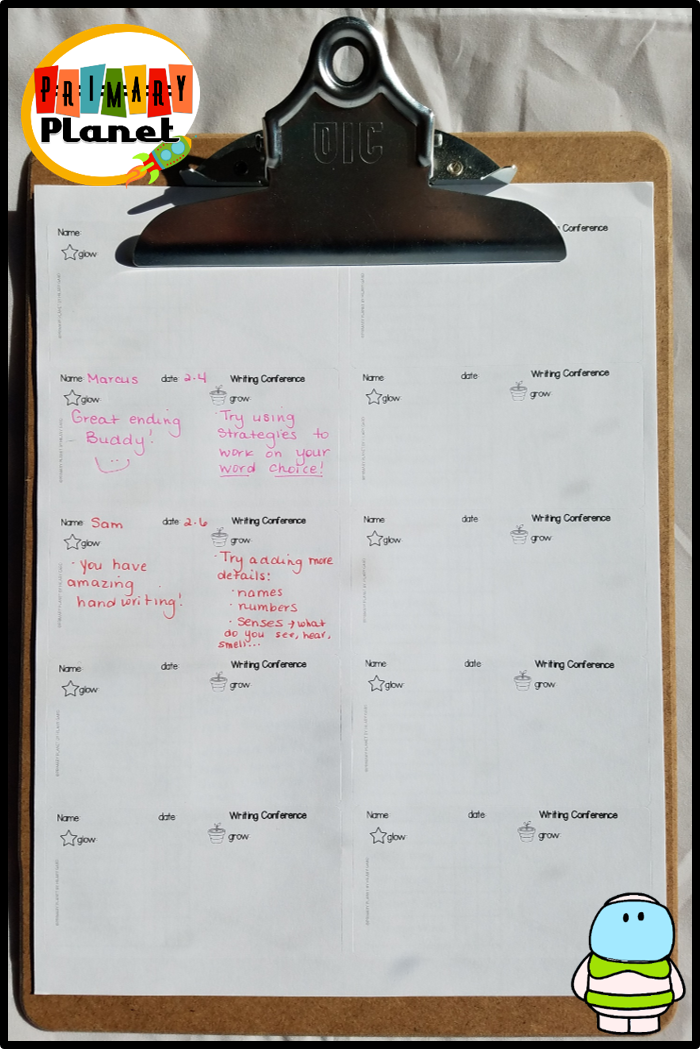 PRIMARY
Planet
OIC
Name
Conference
glow
Name Marcus date 2.4 Writing Conference
glow grow
Great ending
Buddy!
· Try using
strategies to
work on your
word choice!
Name date Writing Conference
glow grow
Name Sam date 2.6 Writing Conference
glow grow
· you have
amazing
handwriting!
· Try adding more
details!
· names
· numbers
· senses → what
do you see, hear,
smell...
Name date Writing Conference
glow grow
Name date Writing Conference
glow grow
Name date Writing Conference
glow grow
Name date Writing Conference
glow grow
Name date Writing Conference
glow grow